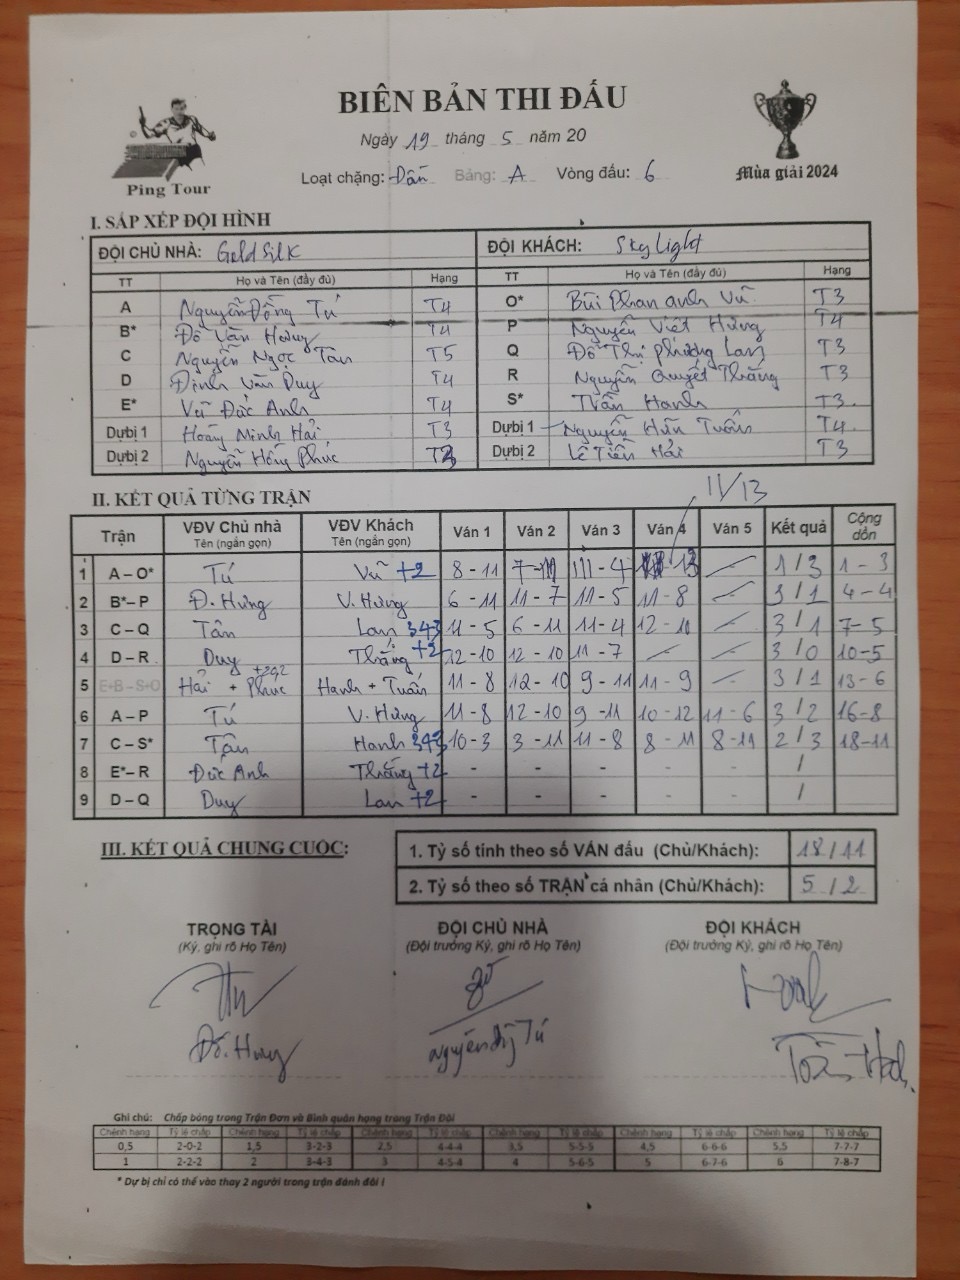 BIÊN BẢN THI ĐẤU
Ngày 19 tháng 5 năm 20
Ping Tour
Loạt chặng: Dân Bảng: A Vòng đấu: 6
Mùa giải 2024
I. SẮP XẾP ĐỘI HÌNH
ĐỘI CHỦ NHÀ: Gold Silk ĐỘI KHÁCH: Sky Light
TT Họ và Tên (đầy đủ) Hạng TT Họ và Tên (đầy đủ) Hạng
A Nguyễn Đồng Tú T4 O* Bùi Phan anh Vũ T3
B* Đỗ Văn Hưng T4 P Nguyễn Viết Hưng T4
C Nguyễn Ngọc Tân T5 Q Đỗ Thị Phương Lan T3
D Đinh Văn Duy T4 R Nguyễn Quyết Thắng T3
E* Vũ Đức Anh T4 S* Trần Hanh T3
Dựbị 1 Hoàng Minh Hải T3 Dựbị 1 Nguyễn Hữu Tuấn T4
Dựbị 2 Nguyễn Hồng Phúc Dựbị 2 Lê Tiến Hải T3
II. KẾT QUẢ TỪNG TRẬN
11/13
Trận VĐV Chủ nhà Tên (ngắn gọn) VĐV Khách Tên (ngắn gọn) Ván 1 Ván 2 Ván 3 Ván 4 Ván 5 Kết quả Cộng dồn
1 A – O* Tú Vũ +2 8 - 11 7 - 11 11 - 4 13 1/3 1 - 3
2 B* – P Đ. Hưng V. Hưng 6 - 11 11 - 7 11 - 5 11 - 8 3/1 4 - 4
3 C – Q Tân Lan 343 11 - 5 6 - 11 11 - 4 12 - 10 3/1 7 - 5
4 D – R Duy Thắng +2 12 - 10 12 - 10 11 - 7 3/0 10 - 5
5 E+B – S+O Hải + Phúc Hanh + Tuấn 11 - 8 12 - 10 9 - 11 11 - 9 3/1 13 - 6
6 A – P Tú V. Hưng 11 - 8 12 - 10 9 - 11 10 - 12 11 - 6 3/2 16 - 8
7 C – S* Tân Hanh 343 10 - 3 3 - 11 11 - 8 8 - 11 8 - 11 2/3 18 - 11
8 E* – R Đức Anh Thắng +2 - - - - - /
9 D – Q Duy Lan +2 - - - - - /
III. KẾT QUẢ CHUNG CUỘC:
1. Tỷ số tính theo số VÁN đấu (Chủ/Khách): 18/11
2. Tỷ số theo số TRẬN cá nhân (Chủ/Khách): 5/2
TRỌNG TÀI ĐỘI CHỦ NHÀ ĐỘI KHÁCH
(Ký, ghi rõ Họ Tên) (Đội trưởng Ký, ghi rõ Họ Tên) (Đội trưởng Ký, ghi rõ Họ Tên)
Ghi chú: Chấp bóng trong Trận Đơn và Bình quân hạng trong Trận Đôi
Chênh hạng Tỷ lệ chấp Chênh hạng Tỷ lệ chấp Chênh hạng Tỷ lệ chấp Chênh hạng Tỷ lệ chấp Chênh hạng Tỷ lệ chấp Chênh hạng Tỷ lệ chấp
0,5 2-0-2 1,5 3-2-3 2,5 4-4-4 3,5 5-5-5 4,5 6-6-6 5,5 7-7-7
1 2-2-2 2 3-4-3 3 4-5-4 4 5-6-5 5 6-7-6 6 7-8-7
* Dự bị chỉ có thể vào thay 2 người trong trận đánh đôi !